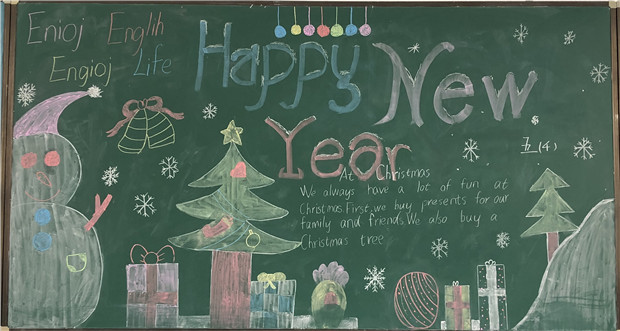 Enioj Englih
Engioj Life
Happy New
Year
五(4)
At Christmas
We always have a lot of fun at
Christmas.First,we buy presents for our
family and friends.We also buy a
Christmas tree